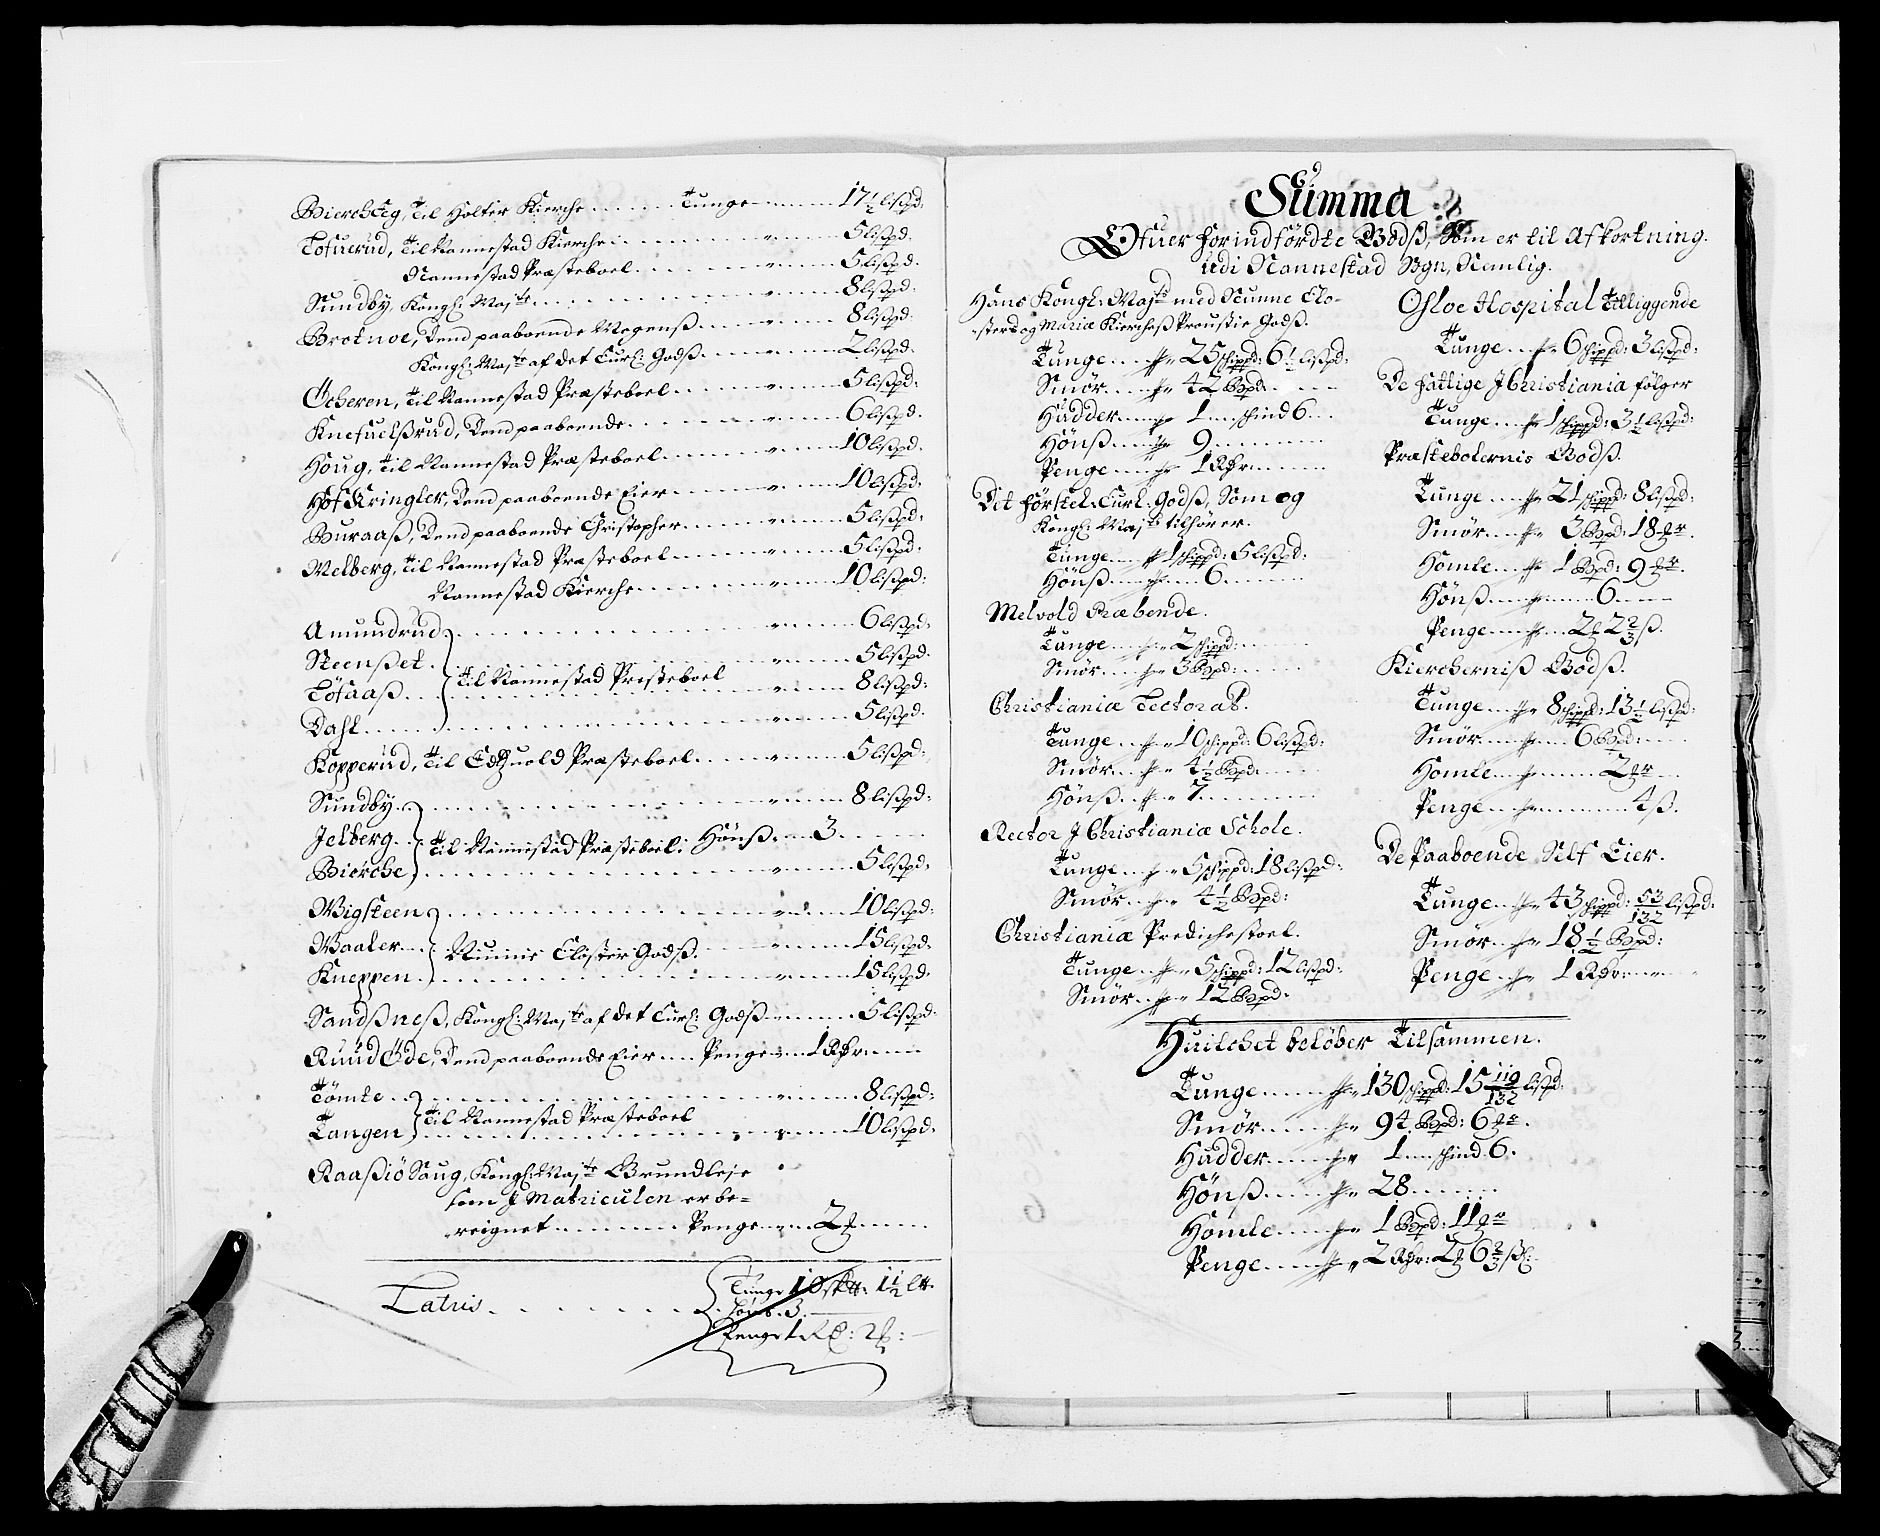 Bierchteg, til Holter Kierche ...... Tunge ...... 17 1/2 lispd:
Tofuerud, til Nannestad Kierche ...... 5 lispd.
Nannestad Præsteboel ...... 5 lispd.
Sundby, Kongl: Majts ...... 8 lispd:
Brotnoe, Dend paaboende Mogenß ...... 8 lispd:
Kongl: Majts af det Curl: Godß ...... 2 lispd.
Öcheren, til Nannestad Præsteboel ...... 5 lispd:
Knefuelßrud, Dend paaboende ...... 6 lispd.
Houg, til Nannestad Præsteboel ...... 10 lispd.
Hof Kringler, Dend paaboende Eier ...... 10 lispd:
Buraaß, Dend paaboende Christopher ...... 5 lispd:
Melberg, til Nannestad Præsteboel ...... 5 lispd:
Nannestad Kierche ...... 10 lispd:
Amundrud ...... 6 lispd:
Steenßet ...... 5 lispd.
til Nannestad Presteboel
Töfaaß ...... 8 lispd:
Dahl ...... 5 lispd:
Kopperud, til Edzuold Præsteboel ...... 5 lispd:
Sundby ...... 8 lispd:
Jelberg til Nannestad Præsteboel: Hönß ... 3
Bierche ...... 5 lispd:
Wigsteen ...... 10 lispd:
Waaler Nunne Closter Godß. ...... 15 lispd:
Kneppen ...... 15 lispd:
Sandßneß, Kongl: Majts af det Curl: Godß ...... 5 lispd:
Ruud Öde, Dend paaboende Eier ... Penge ... 1 Rdr
Tömte ...... 8 lispd:
til Nannestad Præsteboel
Tangen ...... 10 lispd:
Raaßiö Saug, Kongl: Majts Grundleje
som J Matriculen er be-
reignet ...... Penge ... 2
Latus ...... Tunge 10 1 1/2
Hönß. 3.
Penge 1 R: 2
Summa
Ofuer forindfördte Godß, Som er til Afkortning.
udi Nannestad Sogn, Nemlig.
Hans Kongl: Majts med Nunne Clo-
sters og Mariæ Kircheß Proustie Godß.
Tunge ... 25 schippd: 6 1/2 lispd:
Smör ... 42 Bpd.
Hudder ... 1 ... schind 6
Hönß ... 9
Penge ... 1 Rdr
Dit förste Curl: Godß, Som og
Kongl: Majts tilhörer.
Tunge ... 1 schippd: 5 lispd:
Hönß ... 6
Melvold Præbende.
Tunge ... 2 schippd:
Smör ... 3 Bpd:
Christianiæ Lectorat.
Tunge ... 10 schippd: 6 lispd:
Smör ... 4 1/2 Bpd.
Hönß ... 7
Rector J Christianiæ Schole.
Tunge ... 5 schippd: 18 lispd:
Smör ... 4 1/2 Bpd:
Christianiæ Predichestoel.
Tunge ... 5 schippd: 12 lispd:
Smör ... 12 Bpd:
Osloe Hospital tilliggende
Tunge ... 6 schippd: 3 lispd:
De fattige J Christiania følger
Tunge ... 1 schippd: 3 1/2 lispd:
Præstebolernis Godß.
Tunge ... 21 schippd: 8 lispd:
Smör ... 3 Bpd: 18
Homle ... 1 Bpd: 9
Hönß ... 6
Penge ... 2 2 2/3 ß.
Kircherniß Godß.
Tunge ... 8 schippd: 13 1/2 lispd:
Smör ... 6 Bpd:
Homle ... 2
Penge ... 4 ß.
De Paaboende Self Eier.
Tunge ... 43 schippd: 53/132 lispd:
Smör ... 18 1/2 Bpd:
Penge ... 1 Rdr
Huilchet belöber Tilsammen.
Tunge ... 130 schippd: 15 119/132 lispd:
Smör ... 94 Bpd: 6
Hudder ... 1 ... schind 6.
Hönß ... 28
Homle ... 1 Bpd: 11
Penge ... 2 Rdr: 2 6 2/3 ß: